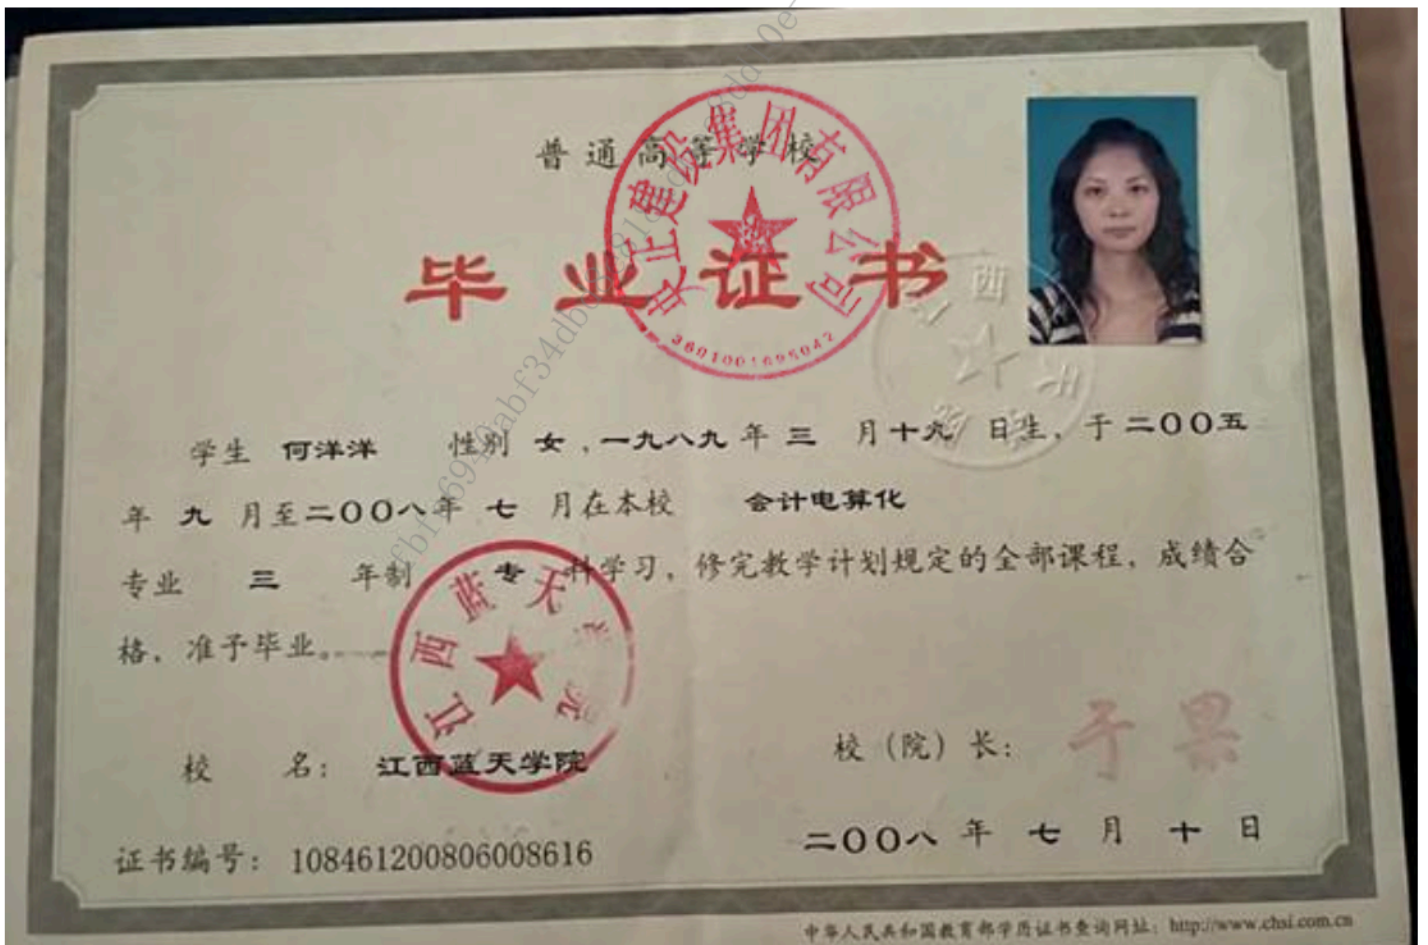 普通高等学校
毕业证书
正建设集团有限公司
3601001695042
学生 何洋洋 性别 女，一九八九年 三 月十九 日生，于二〇〇五
年 九 月至二〇〇八年 七 月在本校 会计电算化
专业 三 年制 专 科学习，修完教学计划规定的全部课程，成绩合
格，准予毕业。
江西蓝天学院
校 名： 江西蓝天学院
校（院）长： 于果
证书编号： 108461200806008616
二〇〇八年 七 月 十 日
中华人民共和国教育部学历证书查询网址：http://www.chsi.com.cn